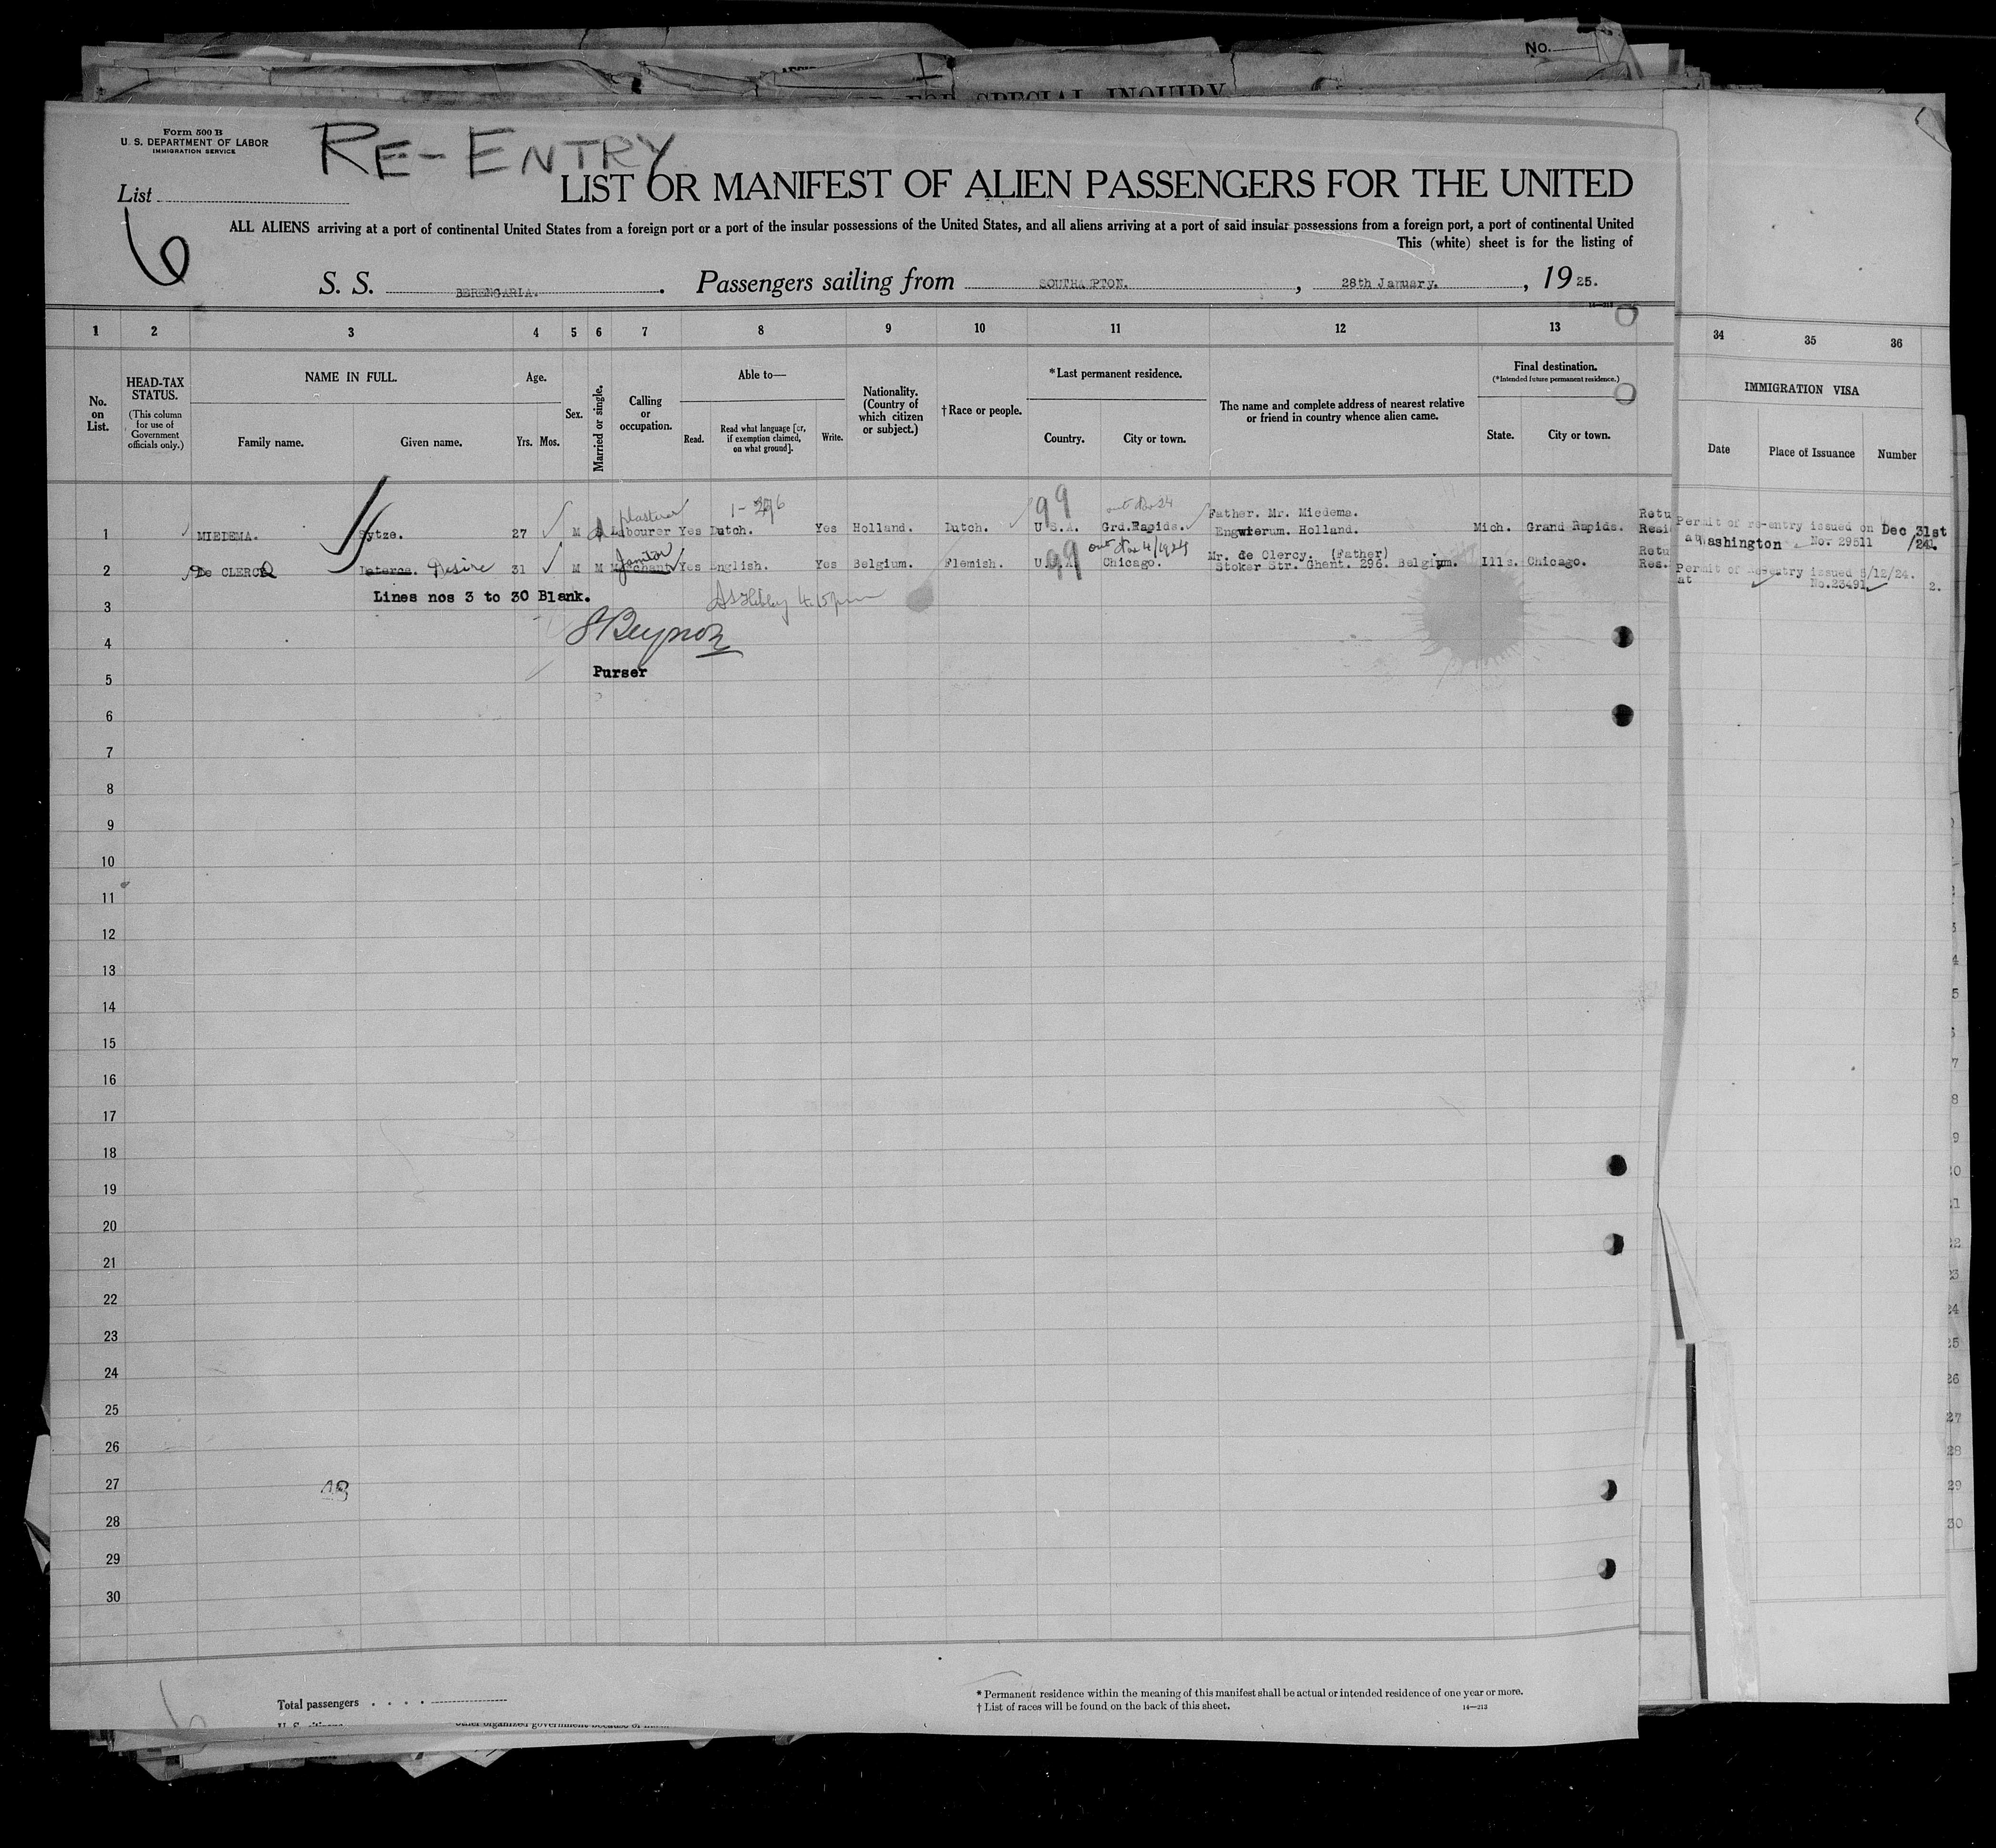 No.
FOR SPECIAL INQUIRY
Form 500 B
U. S. DEPARTMENT OF LABOR
IMMIGRATION SERVICE
RE-ENTRY
List
6
LIST OR MANIFEST OF ALIEN PASSENGERS FOR THE UNITED
ALL ALIENS arriving at a port of continental United States from a foreign port or a port of the insular possessions of the United States, and all aliens arriving at a port of said insular possessions from a foreign port, a port of continental United
This (white) sheet is for the listing of
S. S. BERENGARIA. Passengers sailing from SOUTHAMPTON. , 28th January. , 1925.
14—213
1 2 3 4 5 6 7 8 9 10 11 12 13 34 35 36
No. on List.
HEAD-TAX STATUS.
(This column for use of Government officials only.)
NAME IN FULL.
Family name. Given name.
Age.
Yrs. Mos.
Sex.
Married or single.
Calling or occupation.
Able to—
Read. Read what language [or, if exemption claimed, on what ground]. Write.
Nationality. (Country of which citizen or subject.)
†Race or people.
*Last permanent residence.
Country. City or town.
The name and complete address of nearest relative or friend in country whence alien came.
Final destination.
(*Intended future permanent residence.)
State. City or town.
IMMIGRATION VISA
Date Place of Issuance Number
plasterer 99 Father. Mr. Miedema. Retu
1 MIEDEMA. Sytze. 27 M Labourer Yes Dutch. Yes Holland. Dutch. U.S.A. Grd.Rapids. Engwierum. Holland. Mich. Grand Rapids. Resi Permit of re-entry issued on Dec 31st
at Washington No. 29511 /24.
Janitor 99 out Nov 4/1924 Mr. de Clercy. (Father) Retu
2 De CLERCQ Desire 31 M M Merchant Yes English. Yes Belgium. Flemish. U.S.A. Chicago. Stoker Str. Ghent. 296. Belgium. Ills. Chicago. Res. Permit of Reentry issued 5/12/24.
at No.23491 2.
Lines nos 3 to 30 Blank.
3
4
Purser
5
6
7
8
9
10
11
12
13
14
15
16
17
18
19
20
21
22
23
24
25
26
27
48
28
29
30
Total passengers . . . .
* Permanent residence within the meaning of this manifest shall be actual or intended residence of one year or more.
† List of races will be found on the back of this sheet.
14—213